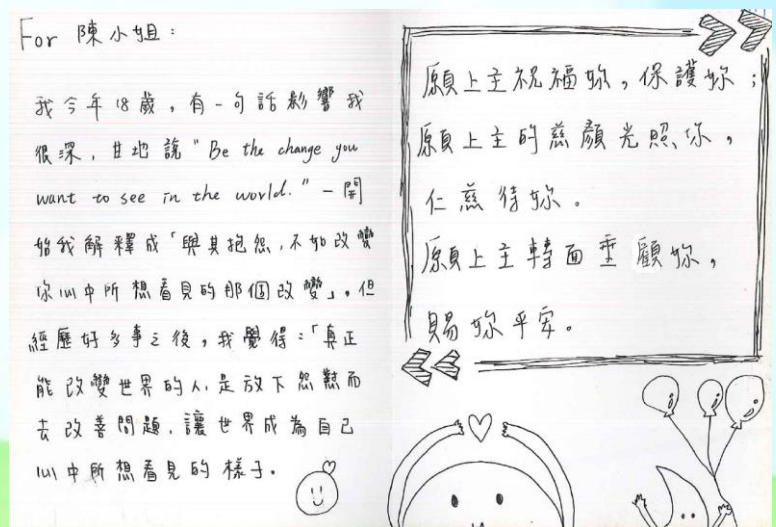 For 陳小姐:
我今年18歲,有一句話影響我
很深,甘地說"Be the change you
want to see in the world."一開
始我解釋成「與其抱怨,不如改變
你心中所想看見的那個改變」。但
經歷好多事之後,我覺得:「真正
能改變世界的人,是放下怨懟而
去改善問題,讓世界成為自己
心中所想看見的樣子。
願上主祝福妳,保護妳;
願上主的慈顏光照你,
仁慈待妳。
願上主轉面垂顧妳,
賜妳平安。